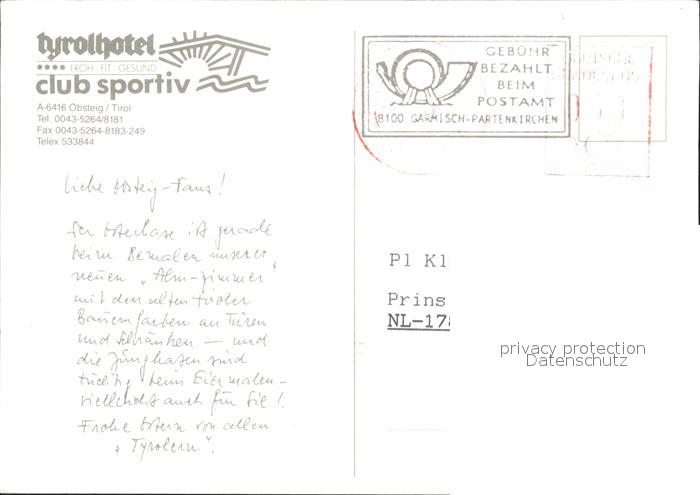 tyrolhotel
FROH · FIT · GESUND
club sportiv
A-6416 Obsteig / Tirol
Tel. 0043-5264/8181
Fax 0043-5264-8183-249
Telex 533844
Liebe Obsteig-Fans!
Der Osterhase ist gerade
beim Bemalen unserer
neuen „Alm-Zimmer"
mit den alten Tiroler
Bauernfarben an Türen
und Schränken – und
die Junghasen sind
tüchtig beim Eiermalen –
vielleicht auch für Sie!
Frohe Ostern von allen
„Tyrolern".
GEBÜHR
BEZAHLT
BEIM
POSTAMT
8100 GARMISCH-PARTENKIRCHEN
Pl Kl
Prins
NL-178
privacy protection
Datenschutz